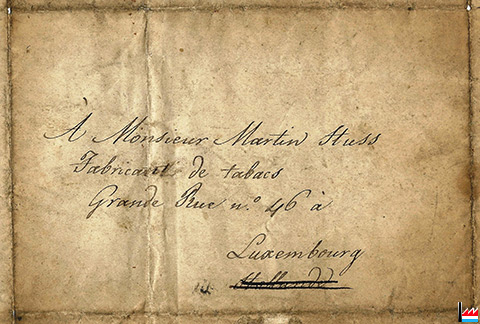 À Monsieur Martin Huss
Fabricant de tabacs
Grande Rue n.º 46 à
Luxembourg